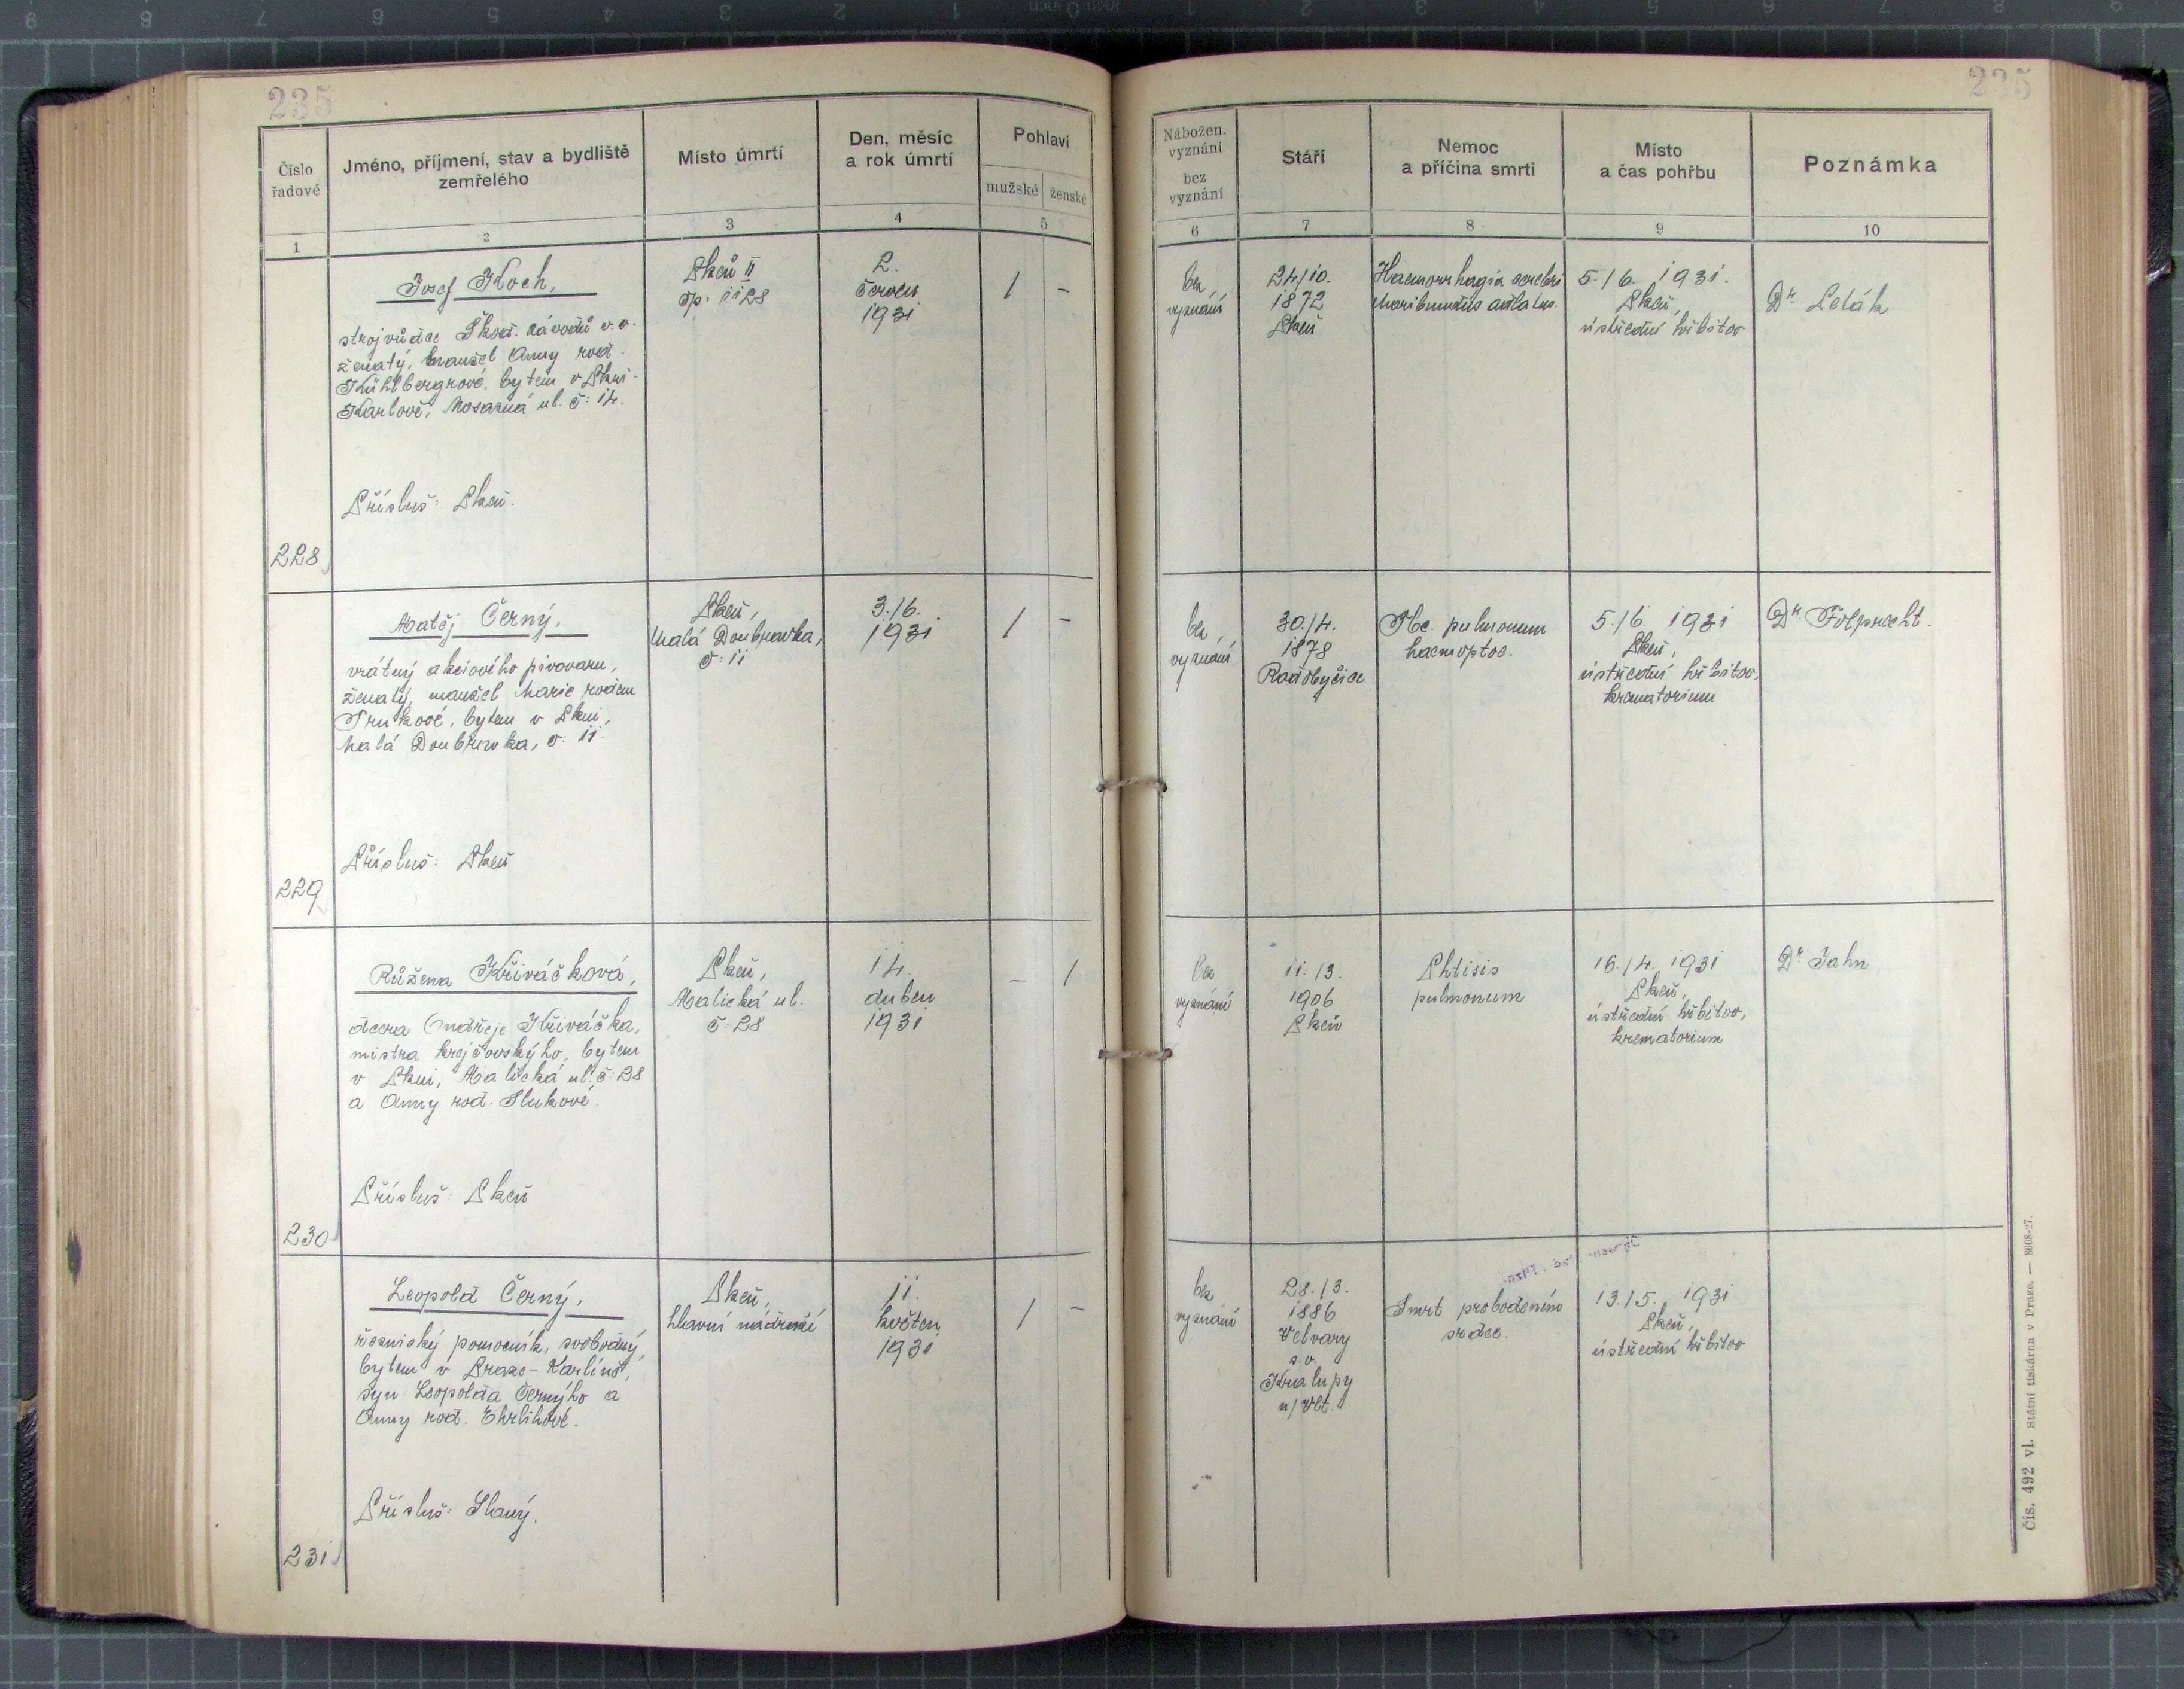 235
235
Číslo
řadové
Jméno, příjmení, stav a bydliště
zemřelého
Místo úmrtí
Den, měsíc
a rok úmrtí
Pohlaví
mužské
ženské
1
2
3
4
5
Nábožen.
vyznání
bez
vyznání
Stáří
Nemoc
a příčina smrti
Místo
a čas pohřbu
Poznámka
6
7
8
9
10
228
Josef Koch,
strojvůdce Škod. závodů v.v.
ženatý, manžel Anny rod.
Kühlbergrové, bytem v Plzni-
Karlově, Mosazná ul. č: 14.
Přísluš: Plzeň.
Plzeň II
čp. 1128
2.
červen
1931
/
-
bez
vyznání
24/10.
1872
Plzeň
Haemorrhagia cerebri
Moribundus adlatus.
5./6. 1931.
Plzeň,
ústřední hřbitov
Dr. Leták
229
Matěj Černý,
vrátný akciového pivovaru,
ženatý, manžel Marie rozen
Trnkové, bytem v Plzni,
Malá Doubravka, č: 11.
Přísluš: Plzeň
Plzeň,
Malá Doubravka,
č: 11
3./6.
1931
/
-
bez
vyznání
30./4.
1878
Radobyčice
Tbc. pulmonum
haemoptoe.
5./6. 1931
Plzeň,
ústřední hřbitov,
krematorium
Dr. Folprecht.
230
Růžena Křiváčková,
dcera Ondřeje Křiváčka,
mistra krejčovského, bytem
v Plzni, Malická ul. č: 28
a Anny rod. Slukové.
Přísluš: Plzeň
Plzeň,
Malická ul.
č: 28
14.
duben
1931
-
/
bez
vyznání
11./3.
1906
Plzeň
Phtisis
pulmonum
16./4. 1931
Plzeň,
ústřední hřbitov,
krematorium
Dr. Jahn
231
Leopold Černý,
řeznický pomocník, svobodný,
bytem v Praze-Karlíně,
syn Leopolda Černýho a
Anny rod. Ehrlihové.
Přísluš: Slaný.
Plzeň,
hlavní nádraží
11.
květen
1931
/
-
bez
vyznání
28./3.
1886
Velvary
s.o.
Kralupy
n/Vlt.
Smrt probodením
srdce.
13./5. 1931
Plzeň,
ústřední hřbitov
Čís. 492 vl. Státní tiskárna v Praze. — 8608-27.